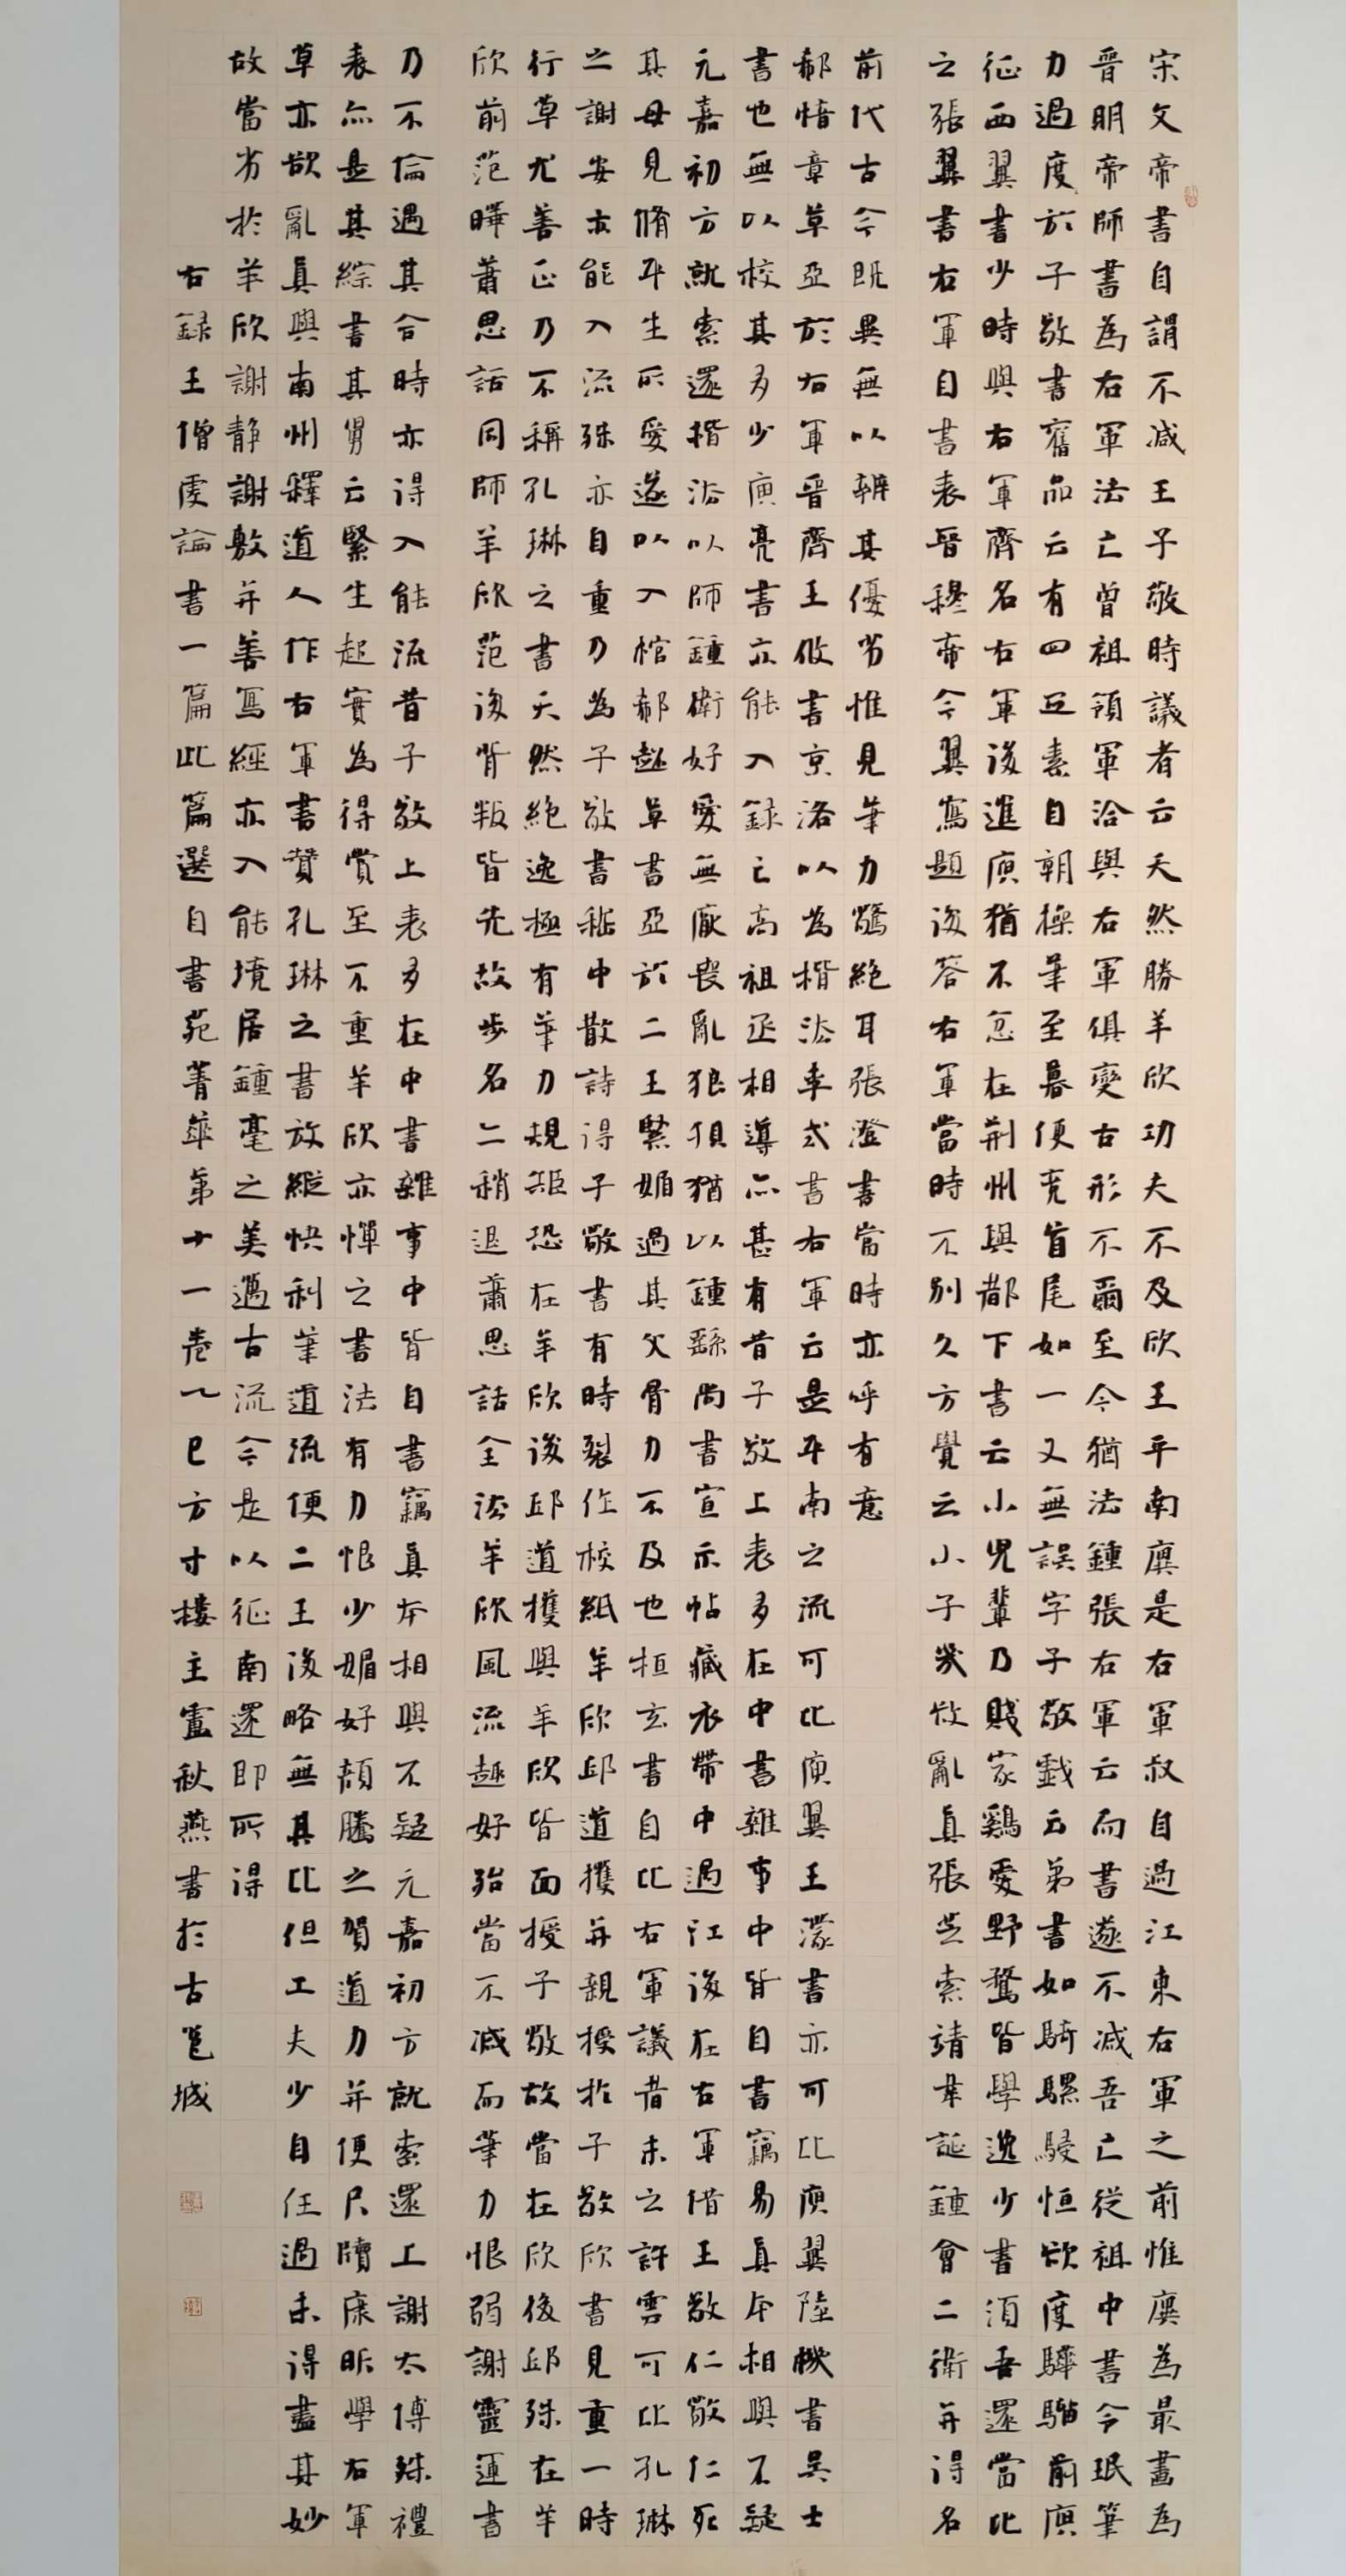 宋文帝書自謂不减王子敬時議者云天然勝羊欣功夫不及欣王平南廙是右軍叔自過江東右軍之前惟廙為最畫為
晋明帝師書為右軍法亡曾祖領軍洽與右軍俱變古形不爾至今猶法鍾張右軍云而書遂不减吾亡從祖中書令珉筆
力過度於子敬書舊品云有四疋素自朝操筆至暮便竟首尾如一又無誤字子敬戲云弟書如騎騾駸恒欲度驊騮前庾
征西翼書少時與右軍齊名右軍後進庾猶不忿在荆州與都下書云小兒輩乃賤家鷄愛野鶩皆學逸少書須吾還當比
之張翼書右軍自書表晋穆帝令翼寫題後答右軍當時不别久方覺云小子幾欲亂真張芝索靖韋誕鍾會二衛并得名
前代古今既異無以辨其優劣惟見筆力驚絶耳張澄書當時亦呼有意
郗愔章草亞於右軍晋齊王攸書京洛以為楷法李式書右軍云是平南之流可比庾翼王濛書亦可比庾翼陸機書吴士
書也無以校其多少庾亮書亦能入録亡高祖丞相導亦甚有昔子敬上表多在中書雜事中皆自書竊易真本相與不疑
元嘉初方就索還楷法以師鍾衛好愛無厭喪亂狼狽猶以鍾繇尚書宣示帖藏衣帶中過江後在右軍借王敬仁敬仁死
其母見脩平生所愛遂以入棺郗超草書亞於二王緊媚過其父骨力不及也桓玄書自比右軍議者未之許雲可比孔琳
之謝安亦能入流殊亦自重乃為子敬書嵇中散詩得子敬書有時裂作校紙羊欣邱道擭并親授於子敬欣書見重一時
行草尤善正乃不稱孔琳之書天然絶逸極有筆力規矩恐在羊欣後邱道擭與羊欣皆面授子敬故當在欣後邱殊在羊
欣前范曄蕭思話同師羊欣范後背叛皆失故步名二稍退蕭思話全法羊欣風流趣好殆當不减而筆力恨弱謝靈運書
乃不倫遇其合時亦得入能流昔子敬上表多在中書雜事中皆自書竊真本相與不疑元嘉初方就索還上謝太傅殊禮
表亦是其綜書其舅云緊生起實為得賞至不重羊欣亦憚之書法有力恨少媚好顔騰之賀道力并便尺牘康昕學右軍
草亦欲亂真與南州釋道人作右軍書贊孔琳之書放縱快利筆道流便二王後略無其比但工夫少自任過未得盡其妙
故當劣於羊欣謝静謝敷并善寫經亦入能境居鍾毫之美邁古流今是以征南還即所得
右録王僧虔論書一篇此篇選自書苑菁華第十一卷乙巳方寸樓主盧秋燕書於古邕城